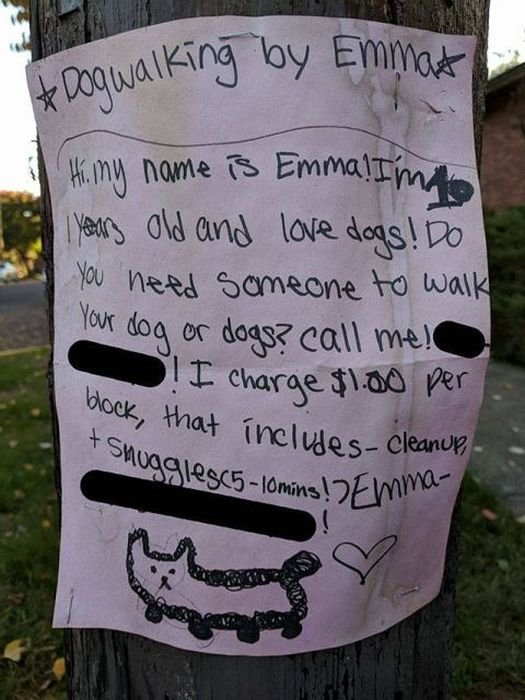 ☆Dogwalking by Emma☆
Hi. my name is Emma! I'm 10
years old and love dogs! Do
you need someone to walk
Your dog or dogs? call me!
! I charge $1.00 per
block, that includes- cleanup,
+ snuggles(5-10mins!)
Emma-
!